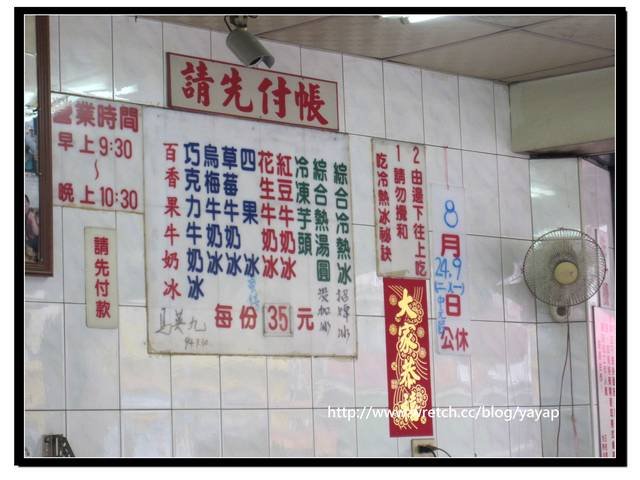 請先付帳
營業時間
早上9:30
~
晚上10:30
請先付款
綜合冷熱冰 招牌冰
綜合熱湯圓 沒加冰
冷凍芋頭
紅豆牛奶冰
花生牛奶冰
四果冰
草莓牛奶冰
烏梅牛奶冰
巧克力牛奶冰
百香果牛奶冰
每份35元
馬英九
吃冷熱冰祕訣
1請勿攪和
2由邊下往上吃
8月
24.9日
公休
大家恭禧
http://www.wretch.cc/blog/yayap